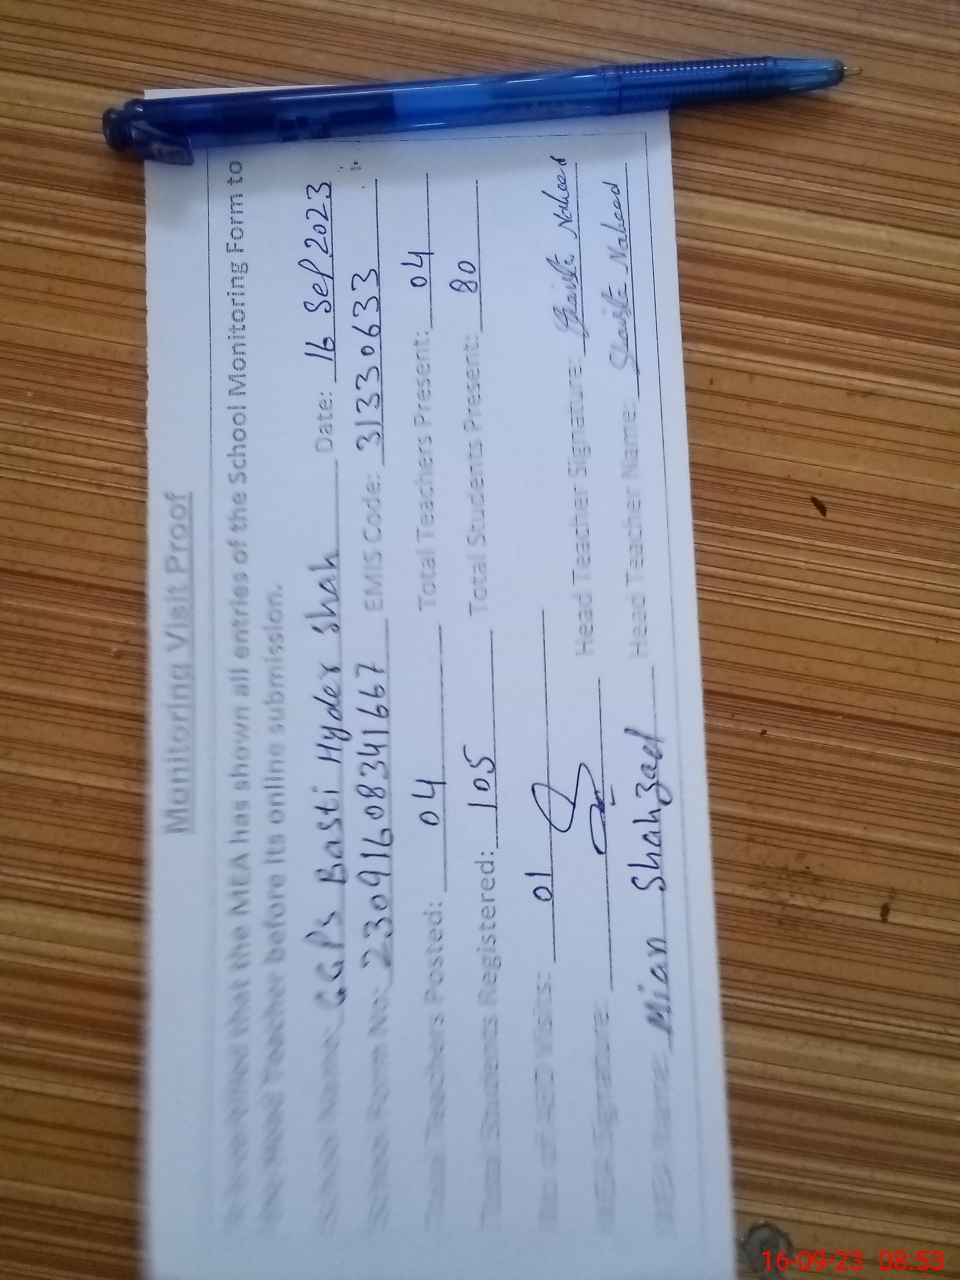 Monitoring Visit Proof
It is verified that the MEA has shown all entries of the School Monitoring Form to
the Head Teacher before its online submission.
School Name: GGPS Basti Hyder Shah Date: 16 Sep 2023
School Form No: 23091608341667 EMIS Code: 31330633
Total Teachers Posted: 04 Total Teachers Present: 04
Total Students Registered: 105 Total Students Present: 80
No of AEO Visits: 01
MEA Signature: Head Teacher Signature: Shaista Naheed
MEA Name: Mian Shahzad Head Teacher Name: Shaista Naheed
16-09-23 08:53